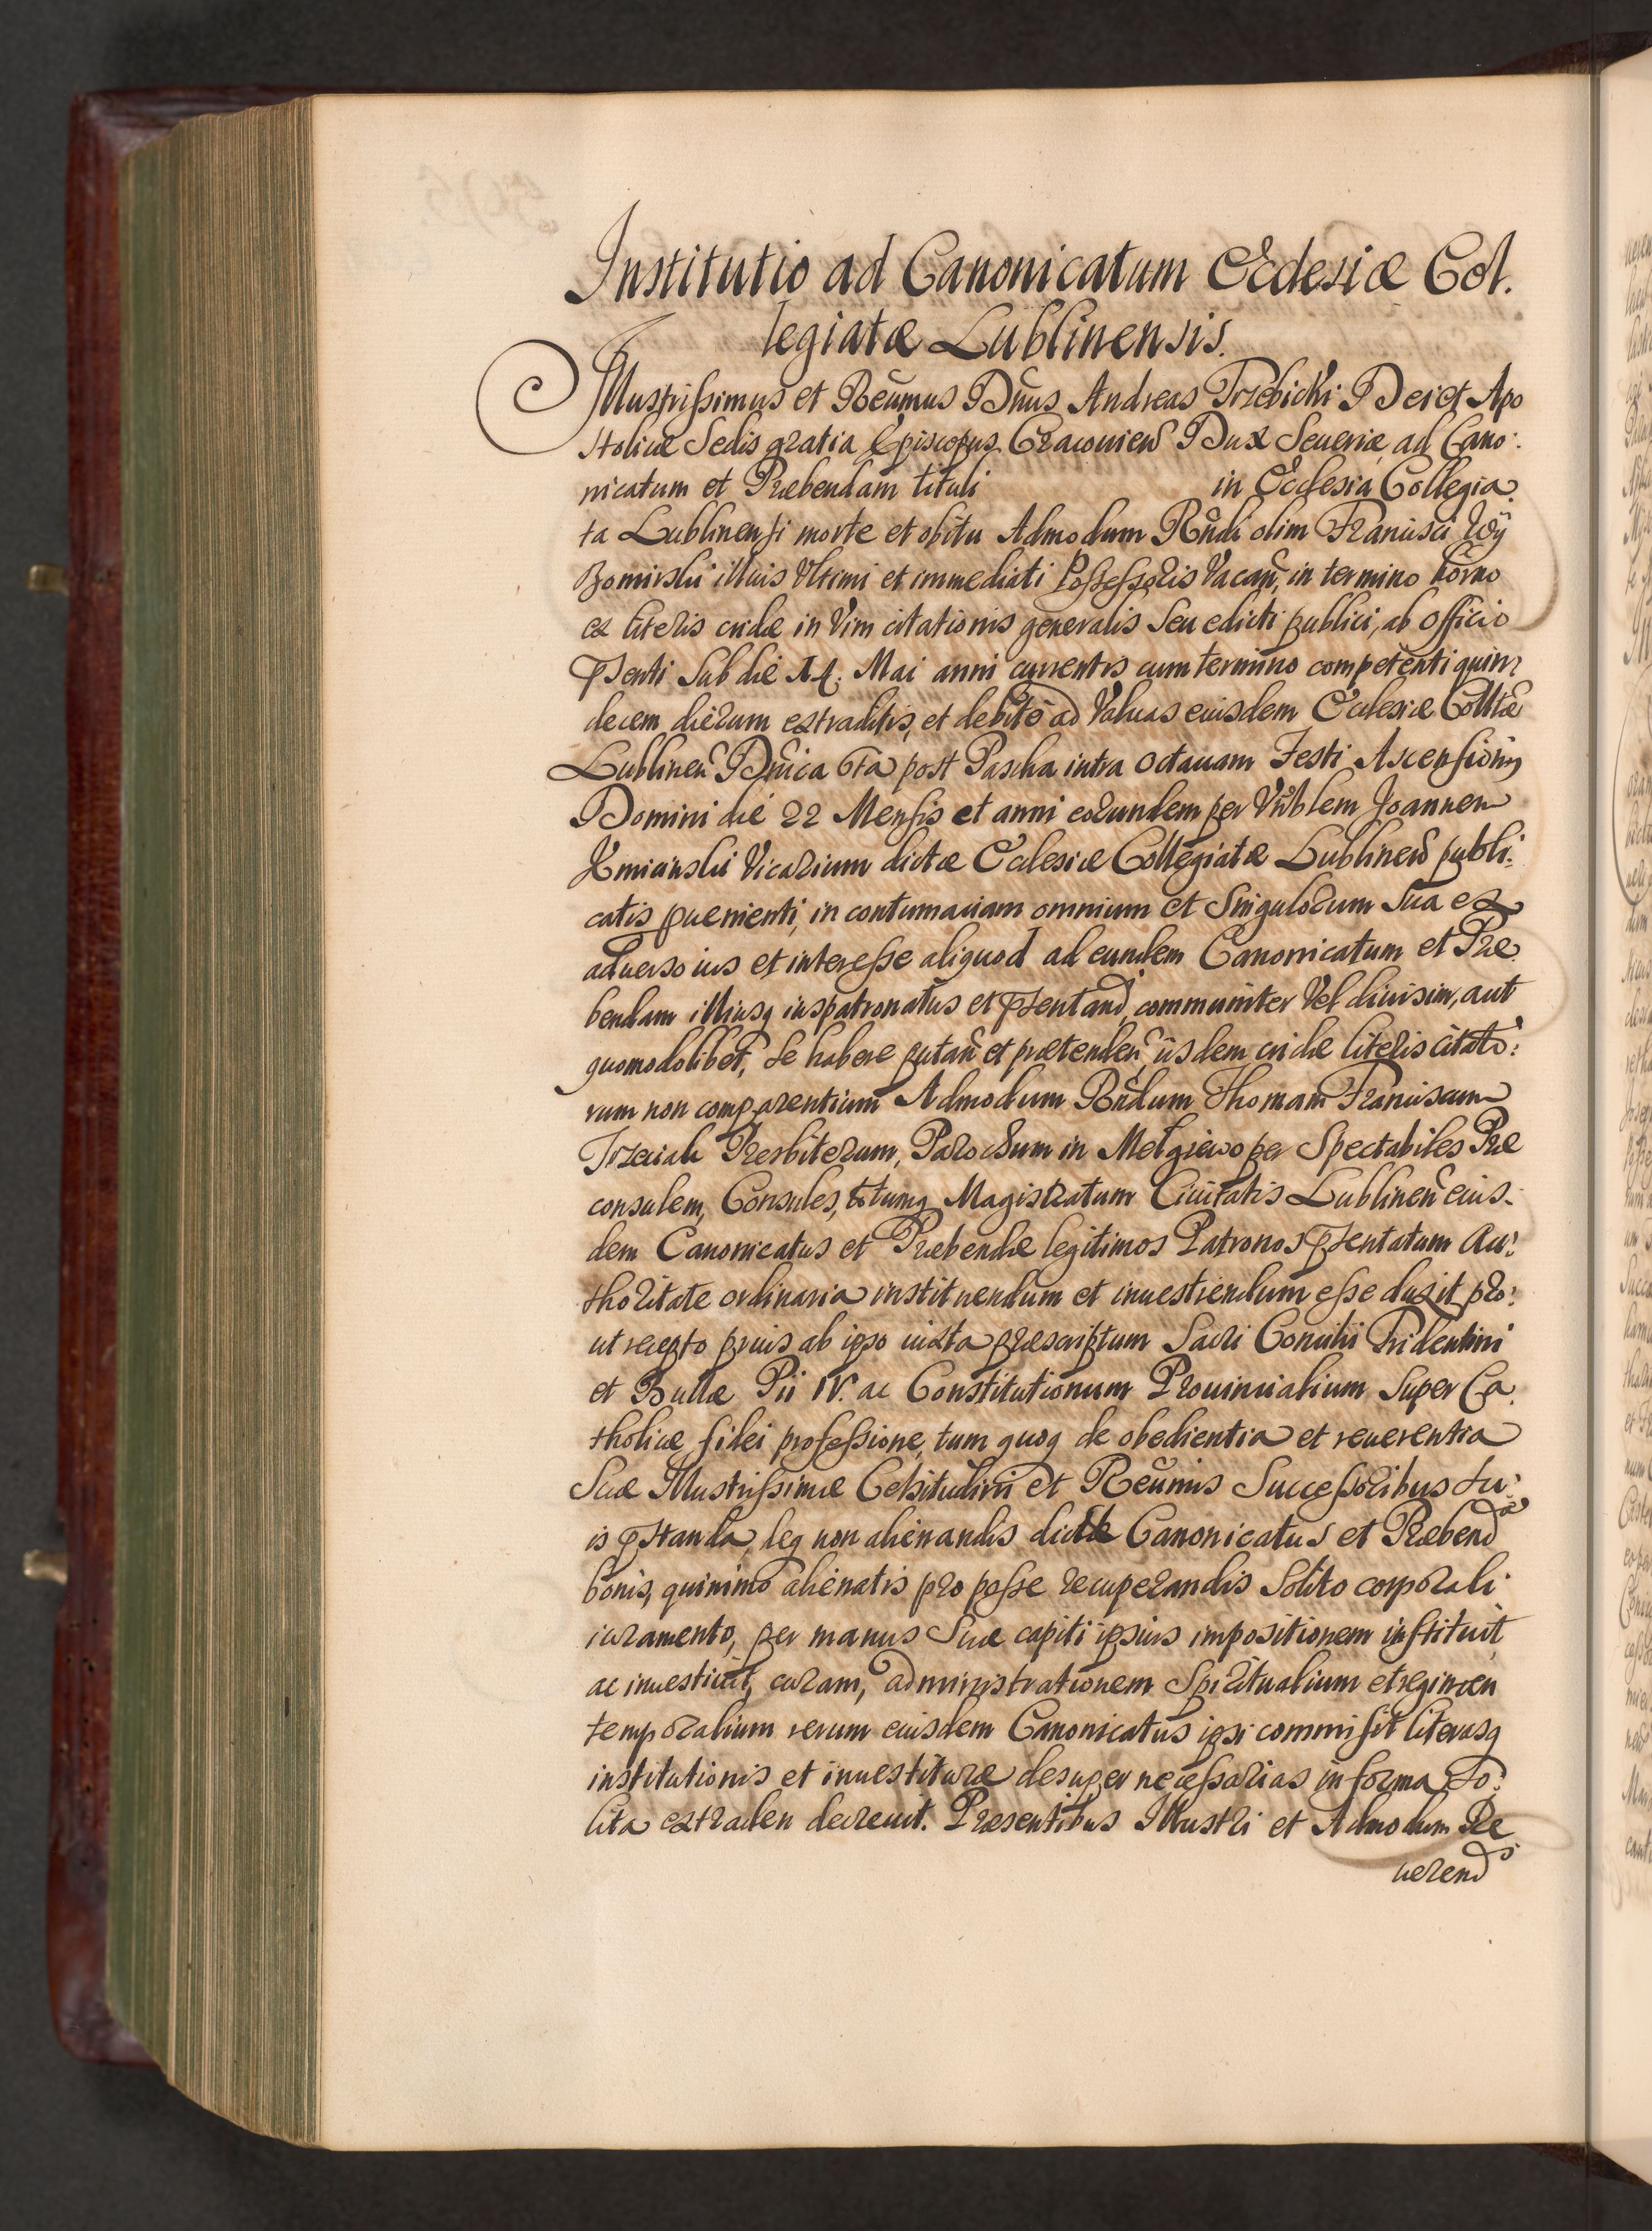 Institutio ad Canonicatum Ecclesiæ Col.
legiatæ Lublinensis.
Illustrissimus et Reũmus Dñus Andreas Trzebicki Dei et Apo
stolicæ Sedis gratia Episcopus Cracouien Dux Seueriæ, ad Cano:
nicatum et Præbendam tituli in Ecclesia Collegia.
ta Lublinensi morte et obitu Admodum Rñdi olim Francisci Wÿ
Bomirski illius Vltimi et immediati Possessoris Vacañ, in termino horno
ex literis cridæ in Vim citationis generalis Seu edicti publici, ab officio
pñti Sub die 14. Mai anni currentis cum termino competenti quin:
decem dierum extraditis, et debite ad Valuas eiusdem Ecclesiæ Colltæ
Lublineñ Dñica 6ta post Pascha intra Octauam Festi Ascensionis
Domini die 22 Mensis et anni eorundem per Vñblem Joannem
Kmicinski Vicarium dictæ Ecclesiæ Collegiatæ Lublinen publi:
catis prouenienti, in contumaciam omnium et Singulorum Sua ex
aduerso ius et interesse aliquod ad eundem Canonicatum et Præ
bendam illiusq iuspatronatus et psentand, communiter Vel diuisim, aut
quomodolibet, Se habere putañ et prætendeñ, iisdem cridæ literis citato:
rum non comparentium Admodum Rñdum Thomam Franciscum
Trzeciak Presbiterum, Parochum in Mełgiewo per Spectabiles Præ
consulem, Consules, totumq Magistratum Ciuitatis Lublineñ eius.
dem Canonicatus et Præbendæ legitimos Patronos psentatum Au:
thoritate ordinaria instituendum et inuestiendum esse duxit pro:
ut recepto prius ab ipso iuxta præscriptum Sacri Concilii Tridentini
et Bullæ Pii IV. ac Constitutionum Prouincialium Super Ca
tholicæ fidei professione, tum quoq de obedientia et reuerentia
Suæ Illustrissimæ Celsitudini et Reũmis Successoribus Su:
is pstanda, deq non alienandis dicti Canonicatus et Præbendæ
bonis, quinimo alienatis pro posse recuperandis Solito corporali
iuramento, per manus Suæ capiti ipsius impositionem instituit
ac inuestiuit, curam, administrationem Spiritualium et regimen
temporalium rerum eiusdem Canonicatus ipsi commisit literasq
institutionis et inuestituræ desuper necessarias in forma So:
lita extraden decreuit. Præsentibus Illustri et Admodum Re
uerend